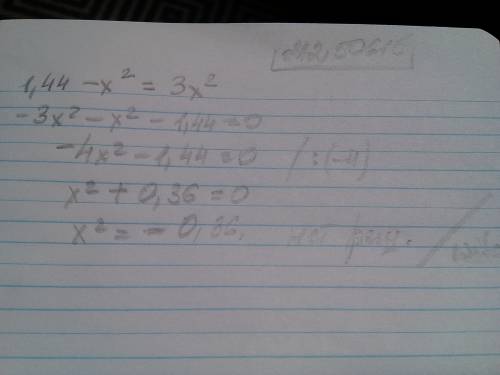 1,44 - x² = 3x²
-3x² - x² - 1,44 = 0
-4x² - 1,44 = 0 / : (-4)
x² + 0,36 = 0
x² = - 0,36, нет